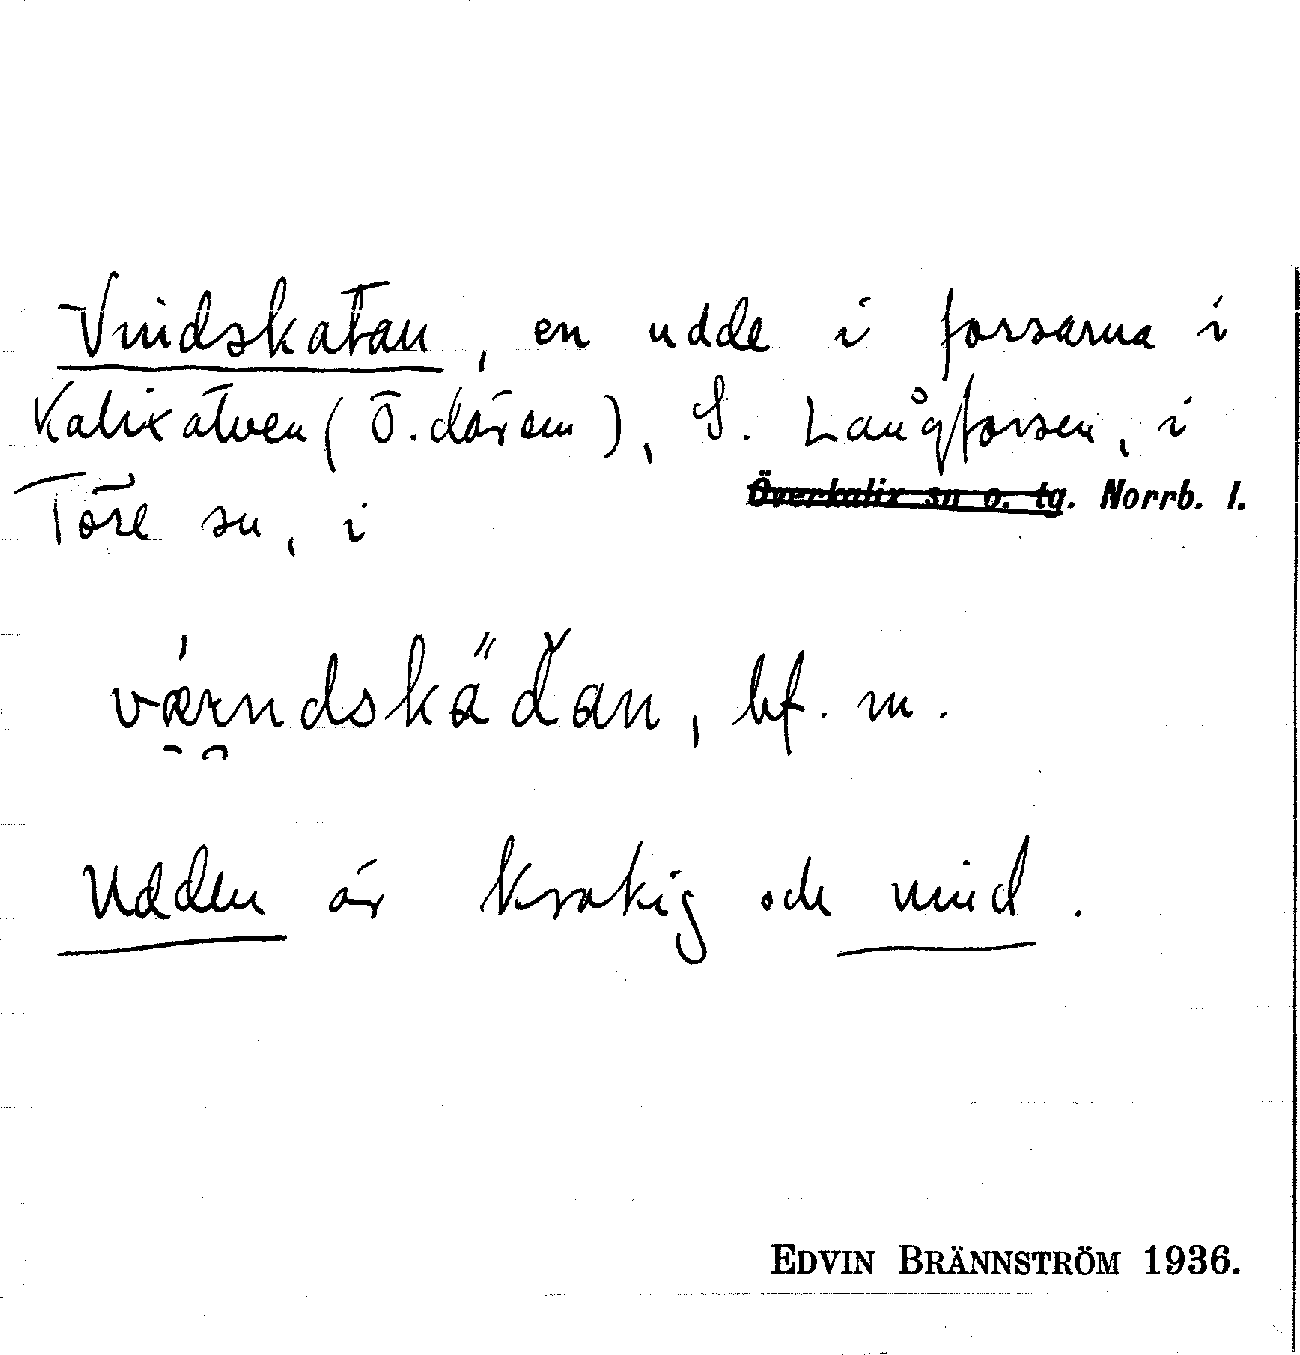 Vindskatan, en udde i forsarna i
Kalixälven (Ö. därom), S. Långforsen, i
Töre sn, i Överkalix sn o. tg. Norrb. l.
værndskädan, bf. m.
Udden är krokig och vind.
EDVIN BRÄNNSTRÖM 1936.